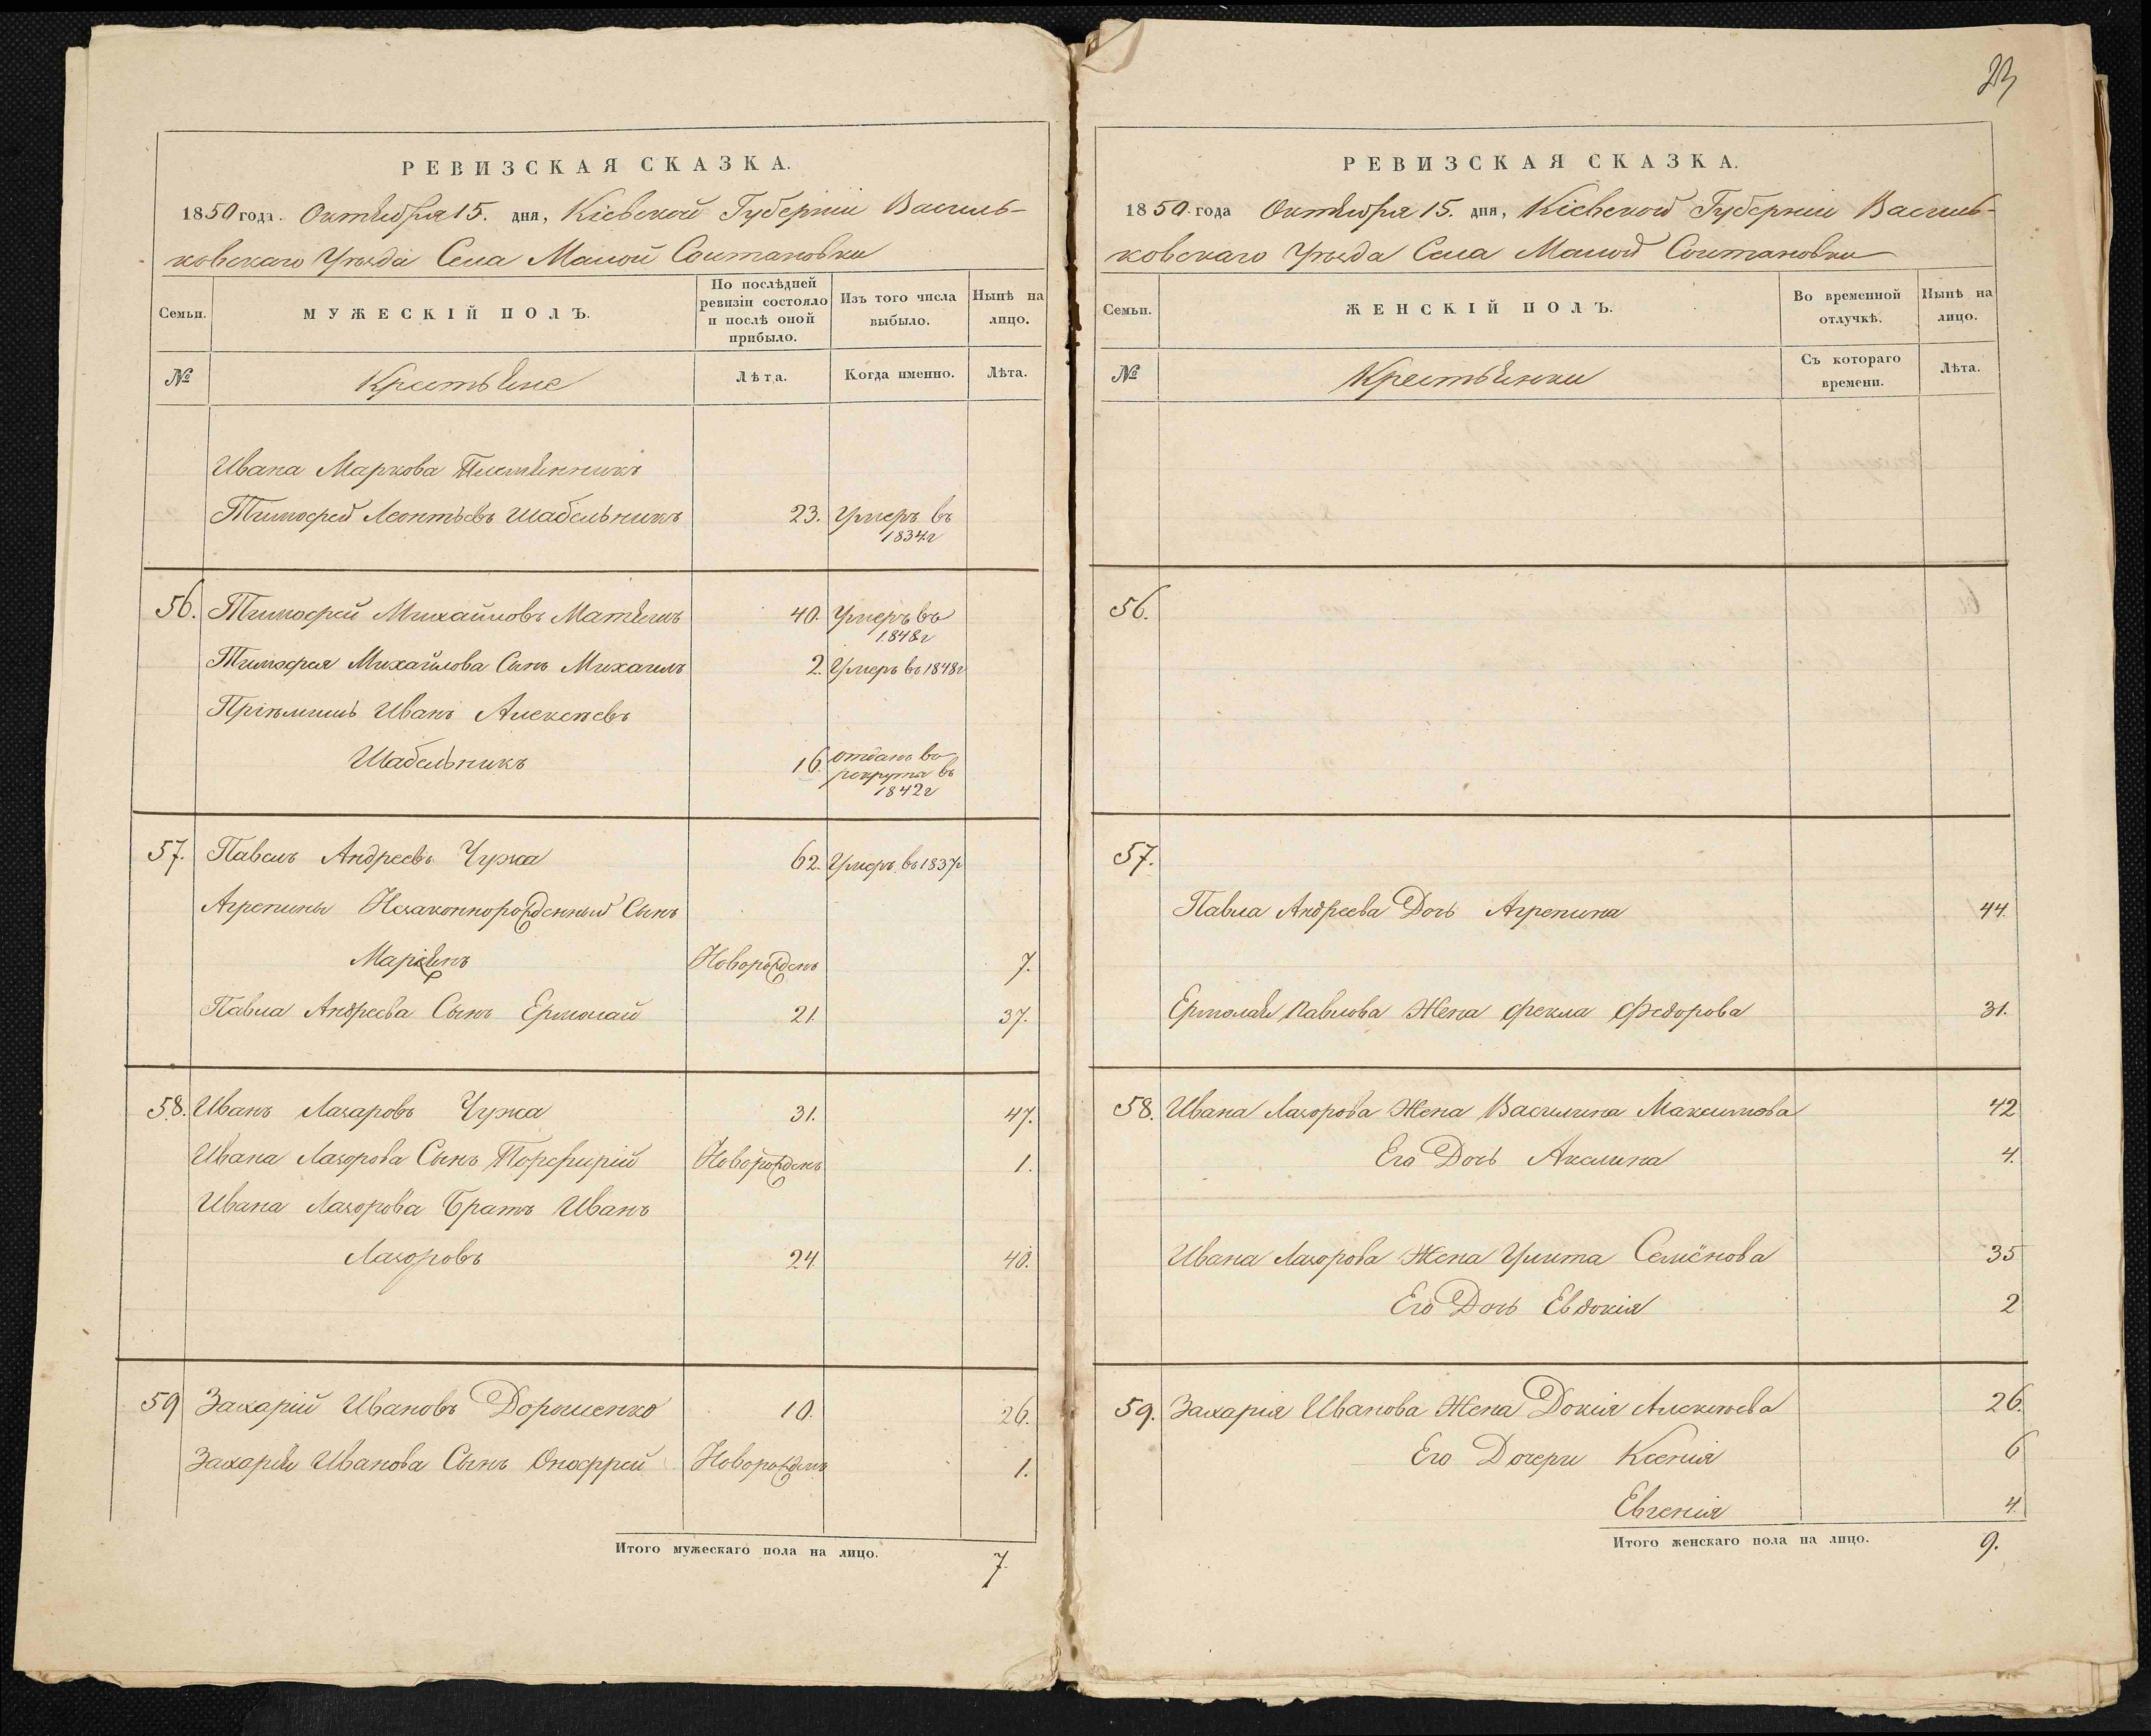 РЕВИЗСКАЯ СКАЗКА.
1850 года. Октября 15. дня, Кіевской Губерніи Василь-
ковскаго Уѣзда Села Малой Солтановки
Семьи.
МУЖЕСКІЙ ПОЛЪ.
По послѣдней ревизіи состояло и послѣ оной прибыло.
Изъ того числа выбыло.
Нынѣ на лицо.
№
Крестьяне
Лѣта.
Когда именно.
Лѣта.
Ивана Маркова Племянникъ
Тимофей Леонтьевъ Шабельникъ 23. Умеръ въ
1834г
56. Тимофей Михайловъ 40. Умеръ въ
1848г
Тимофея Михайлова Сынъ Михаилъ 2. Умеръ въ 1848г
Пріемышъ Иванъ Алексѣевъ
Шабельникъ 16. отданъ въ
рекрута въ
1842г
57. Павелъ Андреевъ Чужа 62. Умеръ въ 1837г
Агрепины Незаконнорожденный Сынъ
Новорожденъ 7.
Павла Андреева Сынъ Ермолай 21. 37.
58. Иванъ Лазаровъ Чужа 31. 47.
Ивана Лазорова Сынъ Порфирій Новорожденъ 1.
Ивана Лазорова Братъ Иванъ
Лазоровъ 24. 40.
59 Захарій Ивановъ Дорошенко 10. 26.
Захарія Иванова Сынъ Онофрей Новорожденъ 1.
Итого мужескаго пола на лицо. 7
23
РЕВИЗСКАЯ СКАЗКА.
1850 года Октября 15. дня, Кіевской Губерніи Василь-
ковскаго Уѣзда Села Малой Солтановки
Семьи.
ЖЕНСКІЙ ПОЛЪ.
Во временной отлучкѣ.
Нынѣ на лицо.
№
Крестьянки
Съ котораго времени.
Лѣта.
56.
57.
Павла Андреева Дочь Агрепина 44.
Ермолая Павлова Жена Фекла Федорова 31.
58. Ивана Лазорова Жена Василина Максимова 42
Его Дочь Акилина 4.
Ивана Лазорова Жена Улита Семёнова 35
Его Дочь Евдокія 2
59. Захарія Иванова Жена Докія Алексѣева 26.
Его Дочери Ксенія 6
Евгенія 4.
Итого женскаго пола на лицо. 9.